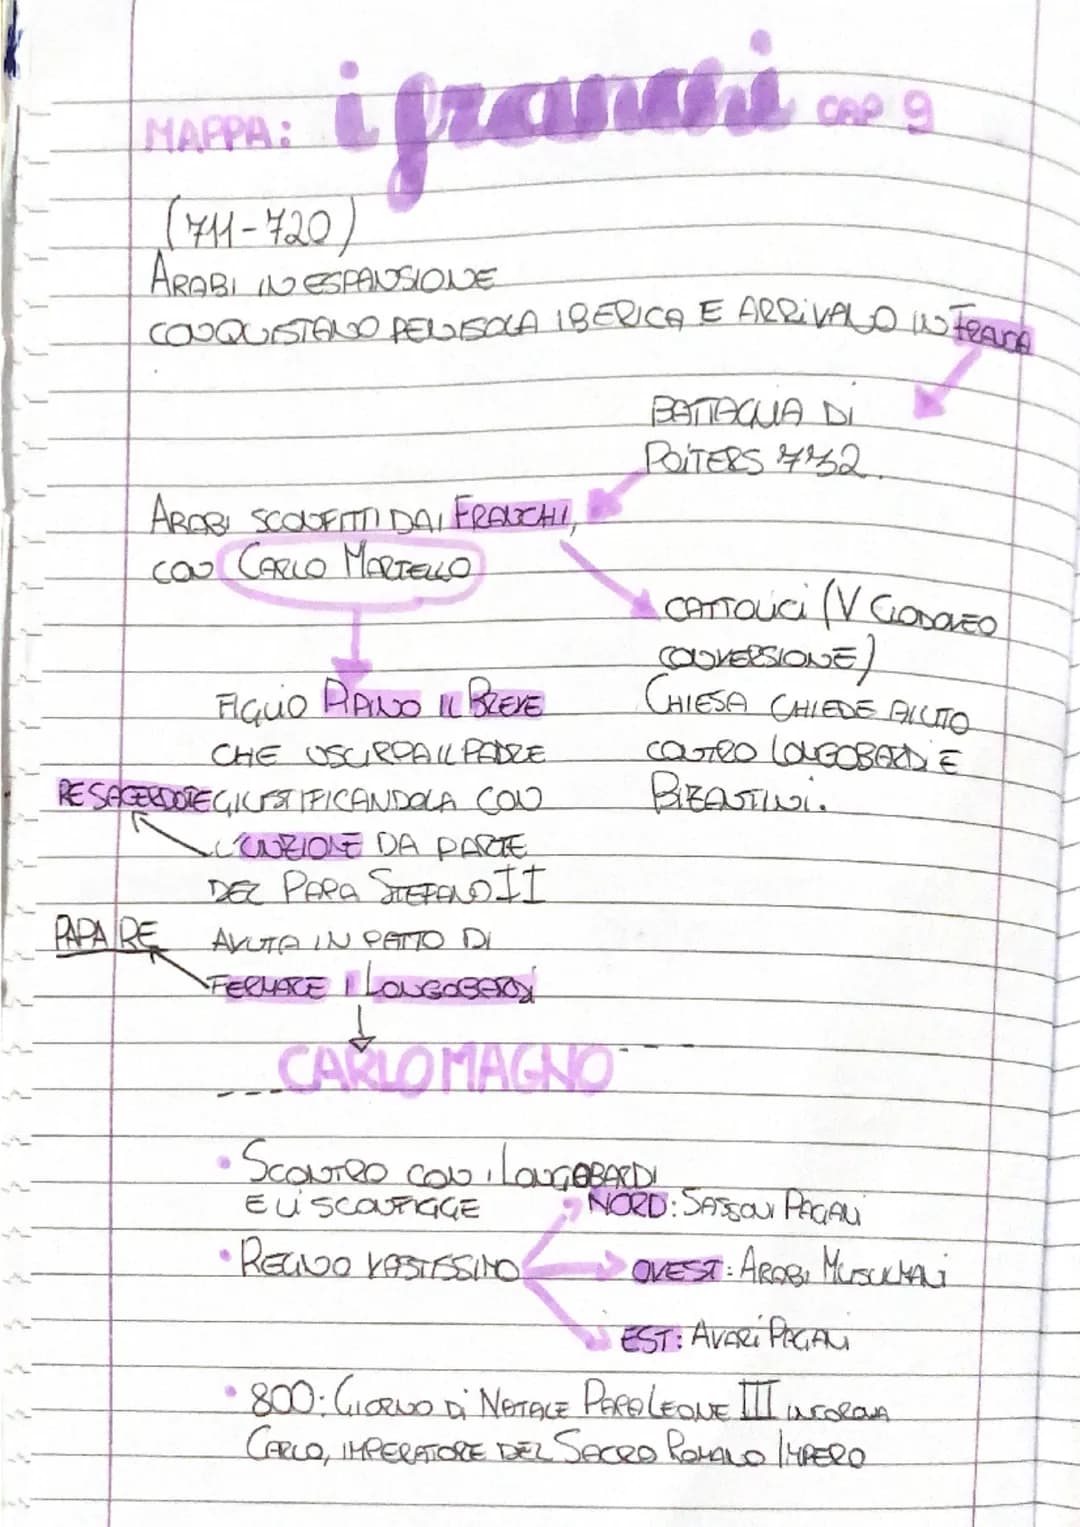 MAPPA: i franchi CAP 9
(711-720)
ARABI IN ESPANSIONE
CONQUISTANO PENISOLA IBERICA E ARRIVANO IN FRANCIA
BATTAGLIA DI
POITERS 732.
ARABI SCONFITTI DAI FRANCHI,
CON CARLO MARTELLO
CATTOLICI (V CLODOVEO
CONVERSIONE)
CHIESA CHIEDE AIUTO
CONTRO LONGOBARDI E
BIZANTINI.
FIGLIO PIPINO IL BREVE
CHE USURPA IL PADRE
RE SACERDOTE GIUSTIFICANDOLA CON
L'UNZIONE DA PARTE
DEL PAPA STEFANO II
PAPA RE AVUTA IN PATTO DI
FERMARE I LONGOBARDI
CARLO MAGNO
• SCONTRO CON I LONGOBARDI
E LI SCONFIGGE
NORD: SASSONI PAGANI
• REGNO VASTISSIMO
OVEST: ARABI MUSULMANI
EST: AVARI PAGANI
• 800: GIORNO DI NATALE PAPA LEONE III INCORONA
CARLO, IMPERATORE DEL SACRO ROMANO IMPERO